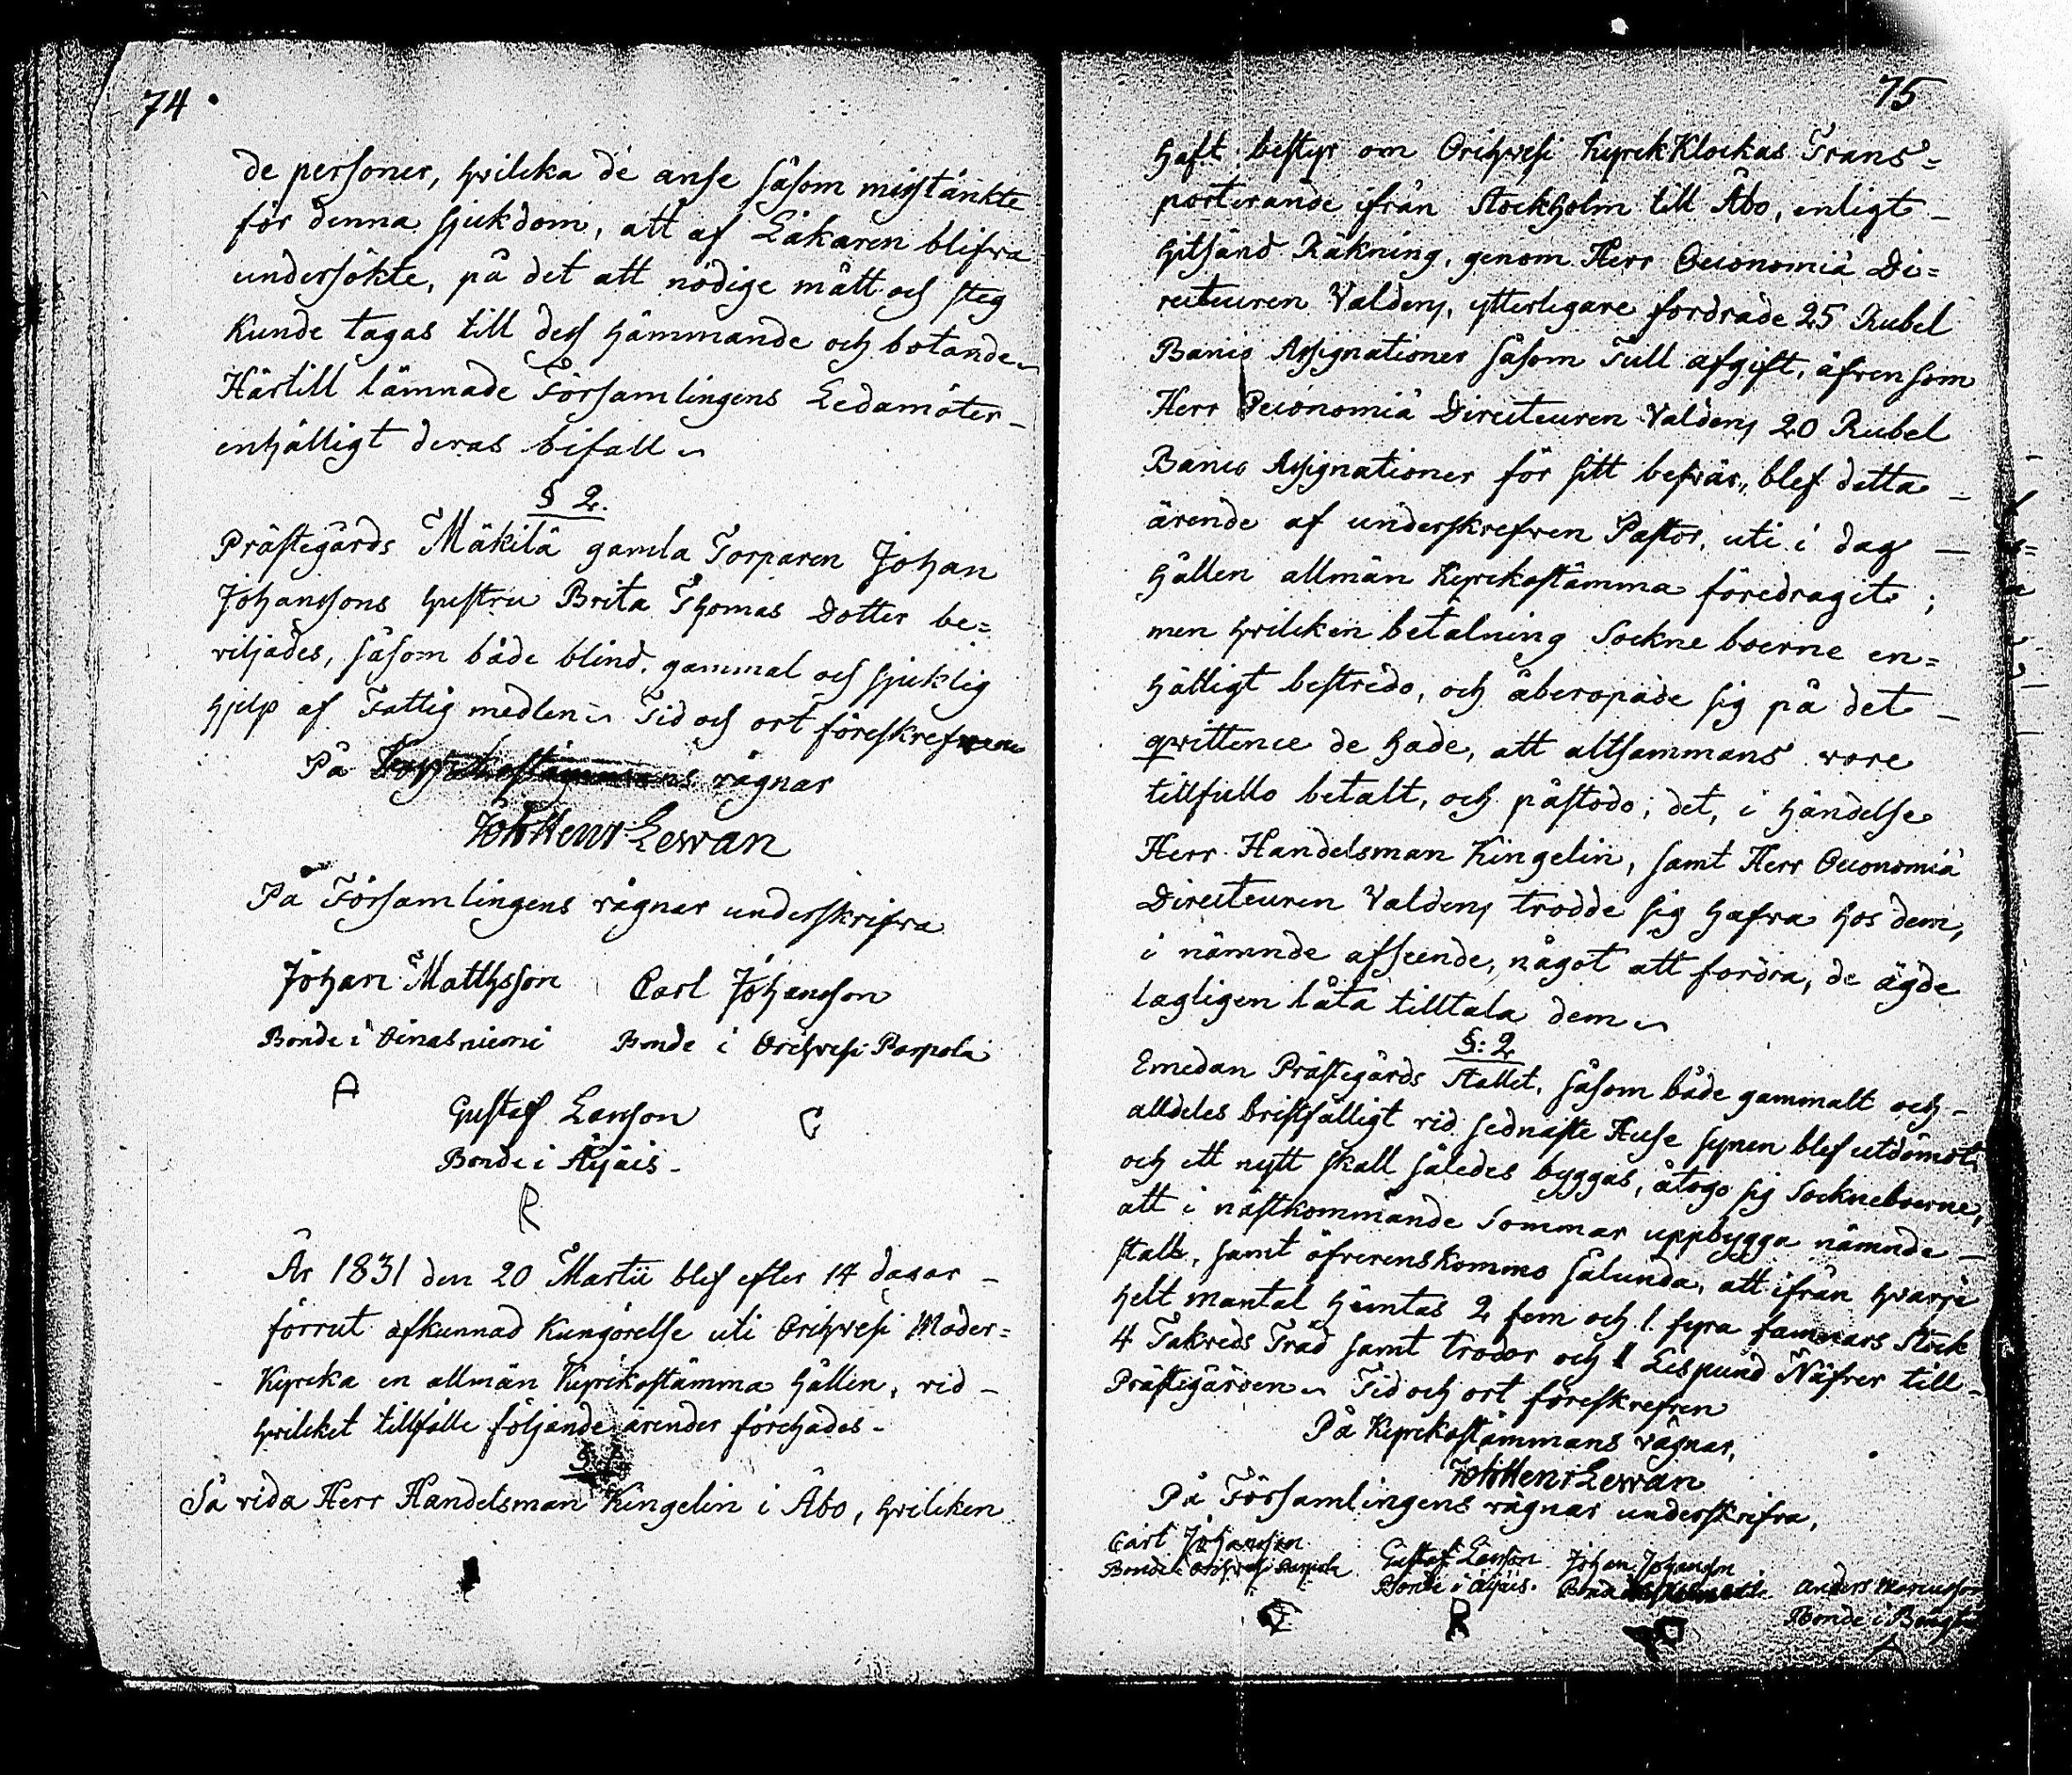 74
de personer, hvilcka de anse såsom misstänkte
för denna sjukdom, att af Läkaren blifva
undersökte, på det att nödige mått och steg
kunde tagas till dess hämmande och botande.
Härtill lämnade Församlingens Ledamöter
enhälligt deras bifall
§ 2.
Prästegårds Mäkilä gamla Torparen Johan
Johanssons hustru Brita Thomas Dotter be=
viljades, såsom både blind, gammal och sjuklig
hjelp af Fattig medlen Tid och ort föreskrefven
På Kyrckostämmans vägnar
Joh Henr Lewan
På Församlingens vägnar underskrifva
Johan Matthsson Carl Johansson
Bonde i Oinasniemi Bonde i Orihvesi Parpola
A
Gustaf Larsson C
Bonde i Äyäis
R
År 1831 den 20 Martii blef efter 14 dagar
förrut afkunnad kungörelse uti Orihvesi Moder=
Kyrcka en allmän Kyrckostämma hållen, vid
hvilcket tillfälle följande ärender förehades
§ 1
Så vida Herr Handelsman Kingelin i Åbo, hvilcken
75
haft bestyr om Orihvesi Kyrck Klockas Trans=
porterande ifrån Stockholm till Åbo, enligt
hitsänd Räkning, genom Herr Oeconomiä Di=
recteuren Valdens, ytterligare fordrade 25 Rubel
Banco Assignationer såsom Tull afgift, äfvensom
Herr Oeconomiä Directeuren Valdens 20 Rubel
Banco Assignationer för sitt besvär, blef detta
ärende af underskrefven Pastor, uti i dag
hållen allmän Kyrckostämma föredragit;
men hvilcken betalning Socknеboerne en=
hälligt bestredo, och åberopade sig på det
qvittence de hade, att altsammans vore
tillfullo betalt, och påstodo, det, i händelse
Herr Handelsman Kingelin, samt Herr Oeconomiä
Directeuren Valdens trodde sig hafva hos dem,
i nämnde afseende, något att fordra, de ägde
lagligen låta tilltala dem
§: 2
Emedan Prästegårds Stallet, såsom både gammalt och
alldeles bristfälligt vid sednaste Huse synen blef utdömdt,
och ett nytt skall således byggas, åtogo sig Sockneboerne,
att i nästkommande Sommar uppbygga nämnde
stall, samt öfverenskommo sålunda, att ifrån hvarje
helt mantal hämtas 2 fem och 1 fyra famnars Stock
4 Takveds Träd samt trodor och 1 Lispund Näfver till
Prästegården Tid och ort föreskrefven
På Kyrckostämmans vägnar,
Joh Henr Lewan
På Församlingens vägnar underskrifva,
Carl Johansson Gustaf Larsson Johan Johansson
Bonde i Orihvesi Parpola Bonde i Äyäis. Bonde Anders Marcusson
Bonde i
C R A